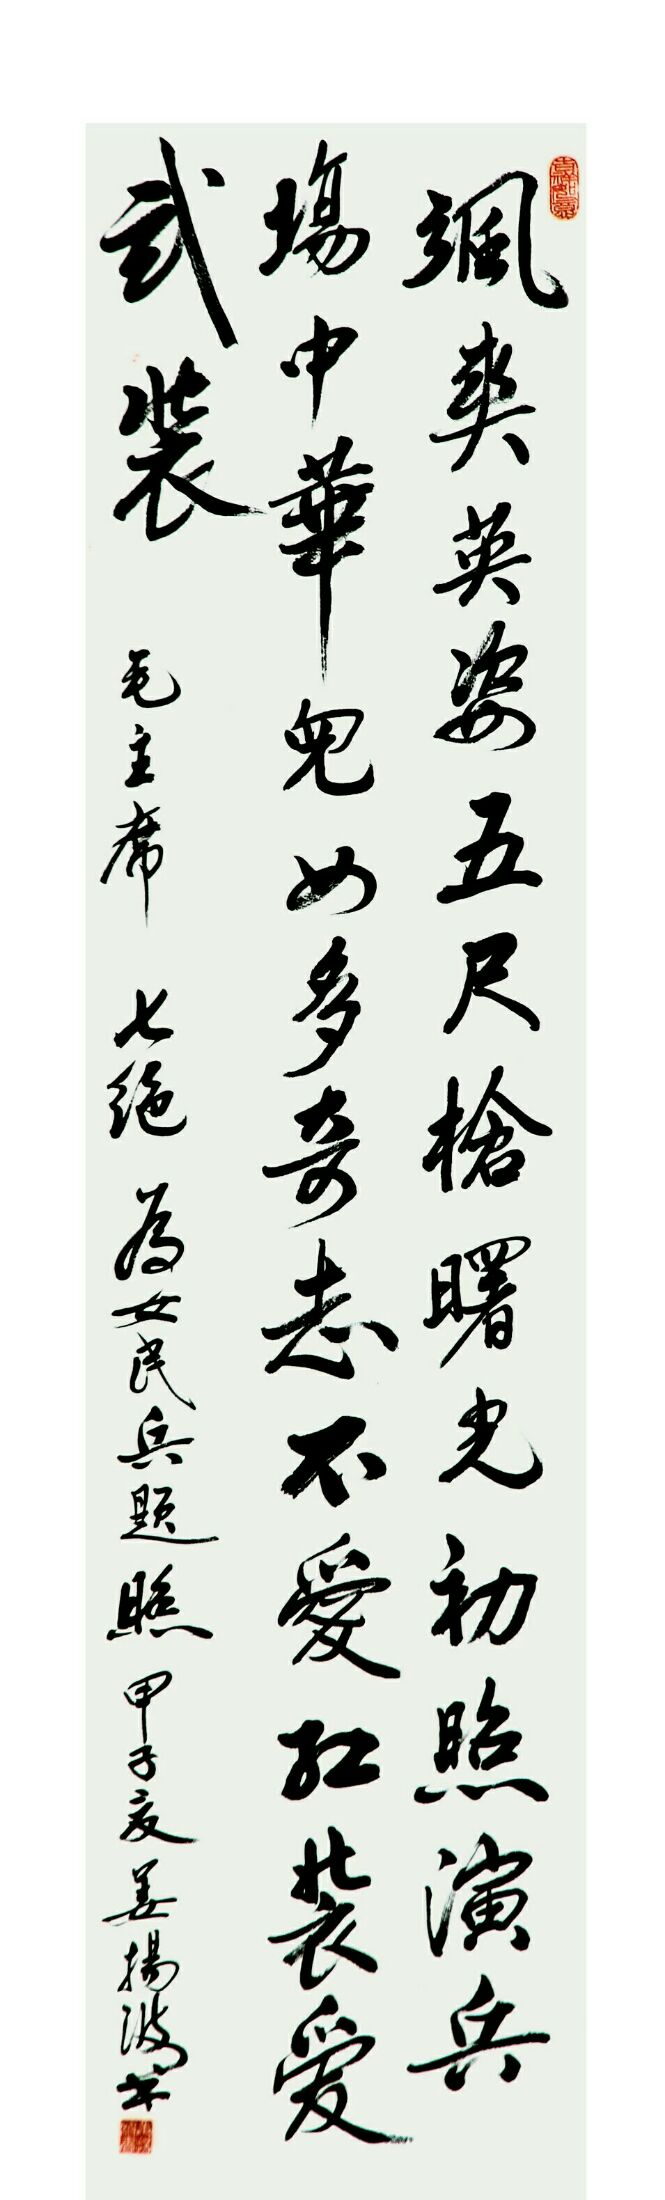 颯爽英姿五尺槍曙光初照演兵
場中華兒女多奇志不愛红裝愛
武裝
毛主席 七绝 為女民兵題照 甲子夏姜揚波书